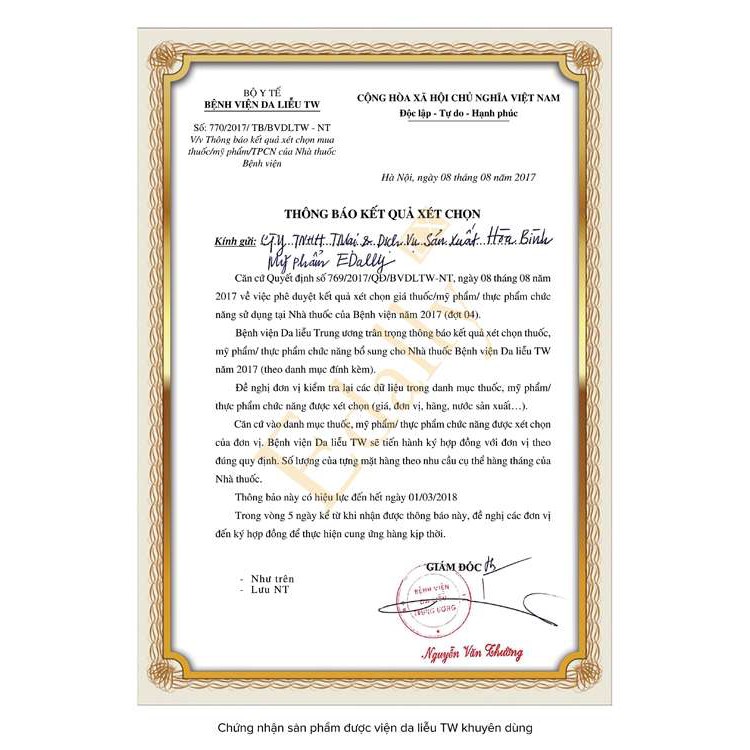 BỘ Y TẾ
BỆNH VIỆN DA LIỄU TW
CỘNG HÒA XÃ HỘI CHỦ NGHĨA VIỆT NAM
Độc lập - Tự do - Hạnh phúc
Số: 770/2017/ TB/BVDLTW - NT
V/v Thông báo kết quả xét chọn mua
thuốc/mỹ phẩm/TPCN của Nhà thuốc
Bệnh viện
Hà Nội, ngày 08 tháng 08 năm 2017
THÔNG BÁO KẾT QUẢ XÉT CHỌN
Kính gửi: CTY TNHH TMại & Dịch Vụ Sản Xuất Hòa Bình
Mỹ phẩm EDally
Căn cứ Quyết định số 769/2017/QĐ/BVDLTW-NT, ngày 08 tháng 08 năm
2017 về việc phê duyệt kết quả xét chọn giá thuốc/mỹ phẩm/ thực phẩm chức
năng sử dụng tại Nhà thuốc của Bệnh viện năm 2017 (đợt 04).
Bệnh viện Da liễu Trung ương trân trọng thông báo kết quả xét chọn thuốc,
mỹ phẩm/ thực phẩm chức năng bổ sung cho Nhà thuốc Bệnh viện Da liễu TW
năm 2017 (theo danh mục đính kèm).
Đề nghị đơn vị kiểm tra lại các dữ liệu trong danh mục thuốc, mỹ phẩm/
thực phẩm chức năng được xét chọn (giá, đơn vị, hàng, nước sản xuất…).
Căn cứ vào danh mục thuốc, mỹ phẩm/ thực phẩm chức năng được xét chọn
của đơn vị. Bệnh viện Da liễu TW sẽ tiến hành ký hợp đồng với đơn vị theo
đúng quy định. Số lượng của từng mặt hàng theo nhu cầu cụ thể hàng tháng của
Nhà thuốc.
Thông báo này có hiệu lực đến hết ngày 01/03/2018
Trong vòng 5 ngày kể từ khi nhận được thông báo này, đề nghị các đơn vị
đến ký hợp đồng để thực hiện cung ứng hàng kịp thời.
GIÁM ĐỐC
- Như trên
- Lưu NT
BỆNH VIỆN
DA LIỄU
TRUNG ƯƠNG
Nguyễn Văn Thường
Edally
Chứng nhận sản phẩm được viện da liễu TW khuyên dùng